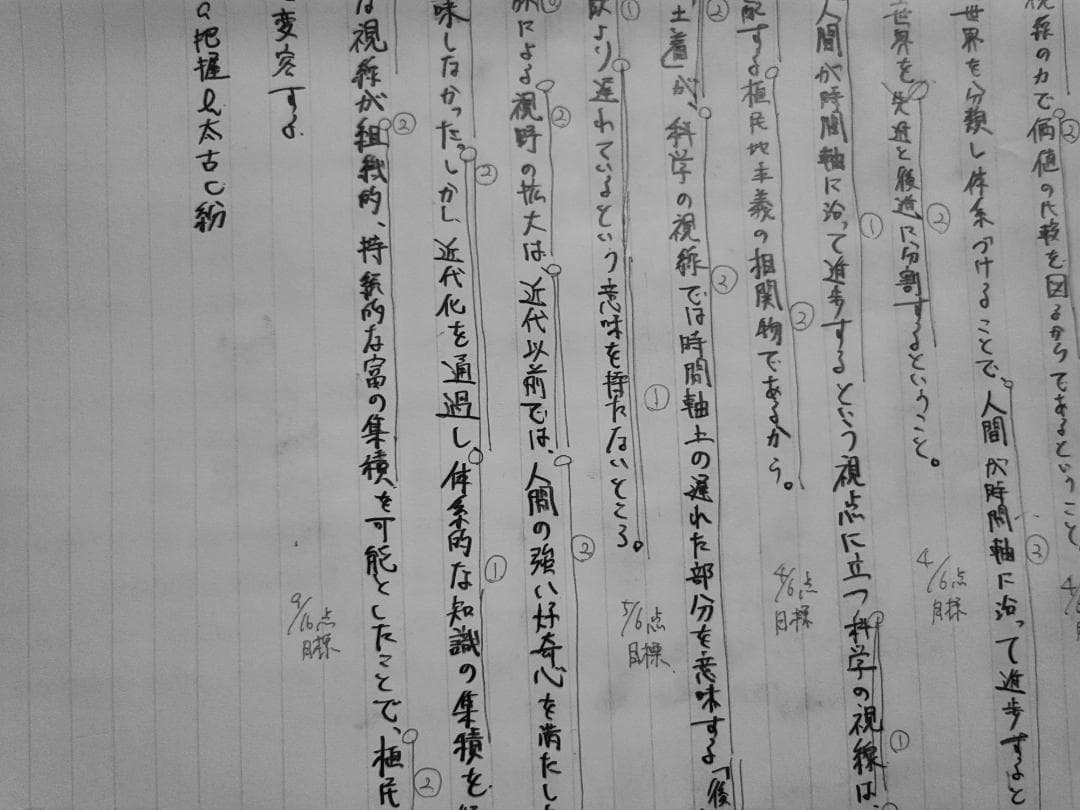 視線の力で価値の代表を図るからであるということ。
②
4/6
世界を分類し体系づけることで、人間が時間軸に沿って進歩すると
②
世界を先進と後進に分割するということ。
②
4/6点
目標
人間が時間軸に沿って進歩するという視点に立つ科学の視線は
①
①
配する植民地主義の相関物であるから。
②
4/6点
目標
土着」が、科学の視線では時間軸上の遅れた部分を意味する「後
②
②
より遅れているという意味を持たないところ。
①
①
5/6点
目標
による視野の拡大は、近代以前では、人間の強い好奇心を満たし
②
②
味しなかった。しかし、近代化を通過し、体系的な知識の集積を
②
①
な視線が組織的、持続的な富の集積を可能としたことで、植民
②
②
変容する
9/16点
目標
a把握 b太古 c紛